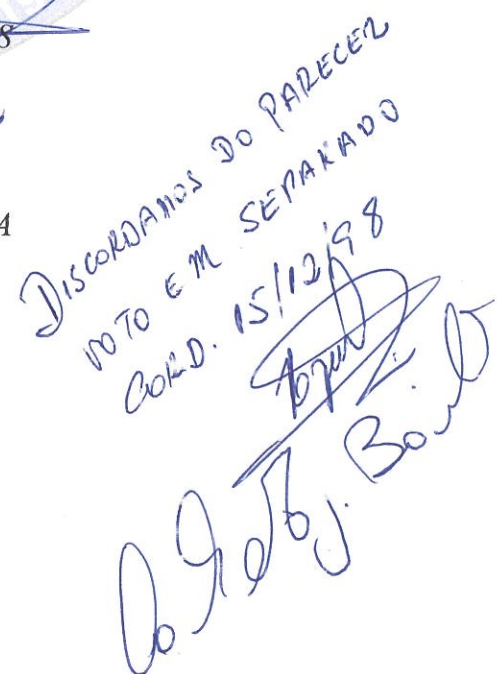 8
A
DISCORDAMOS DO PARECER
VOTO EM SEPARADO
CORD. 15/12/98